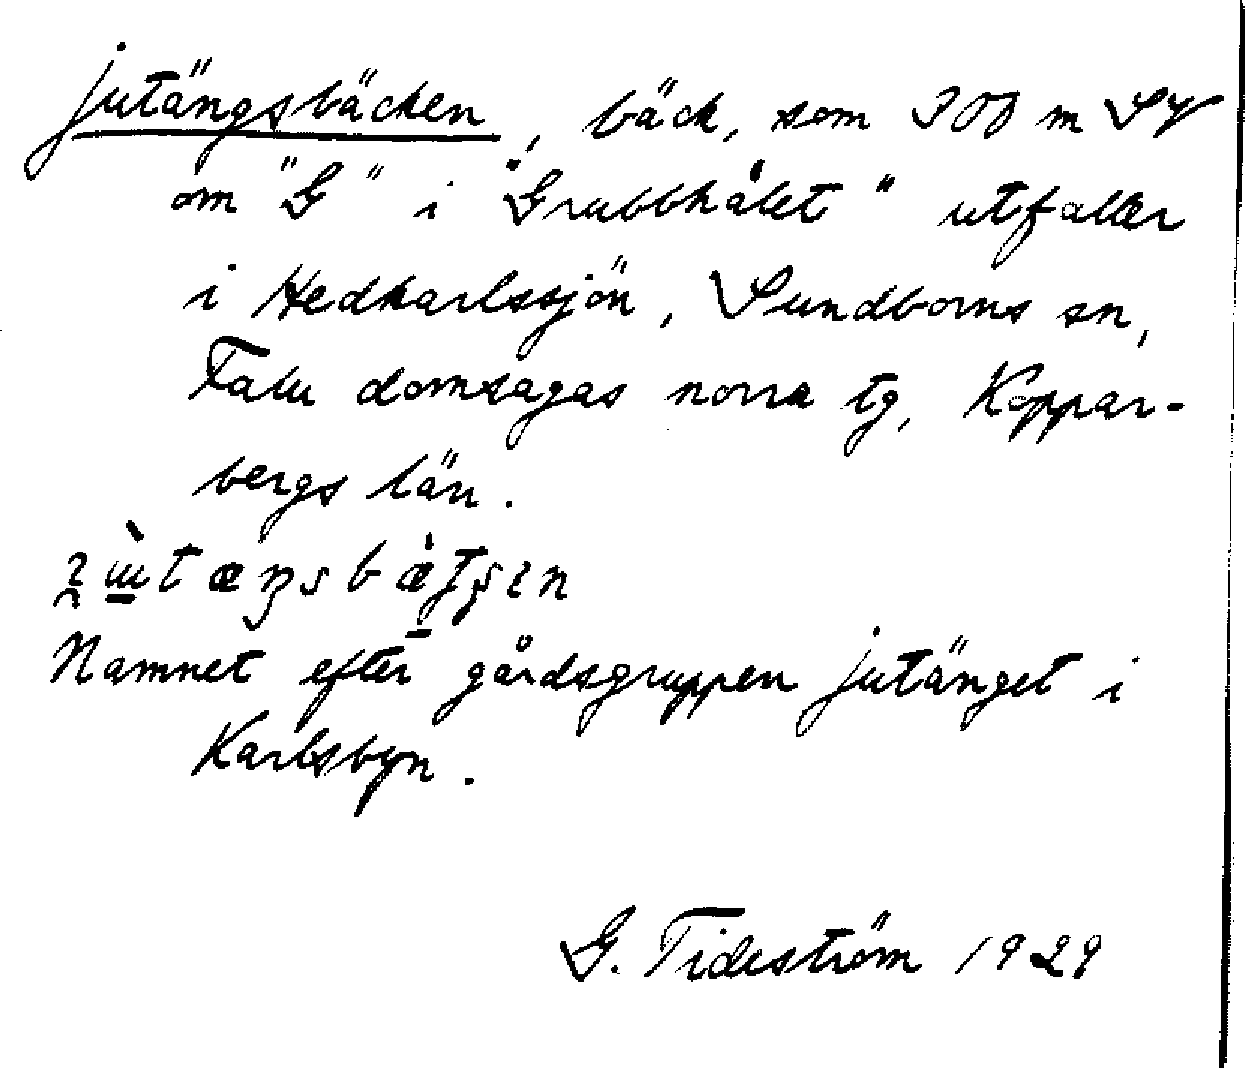 Jutängsbäcken, bäck, som 300 m SV
om "G" i "Grubbhålet" utfaller
i Hedkarlssjön, Sundborns sn,
Falu domsagas norra tg, Koppar-
bergs län.
Namnet efter gårdsgruppen Jutänget i
Karlsbyn.
G. Tideström 1929